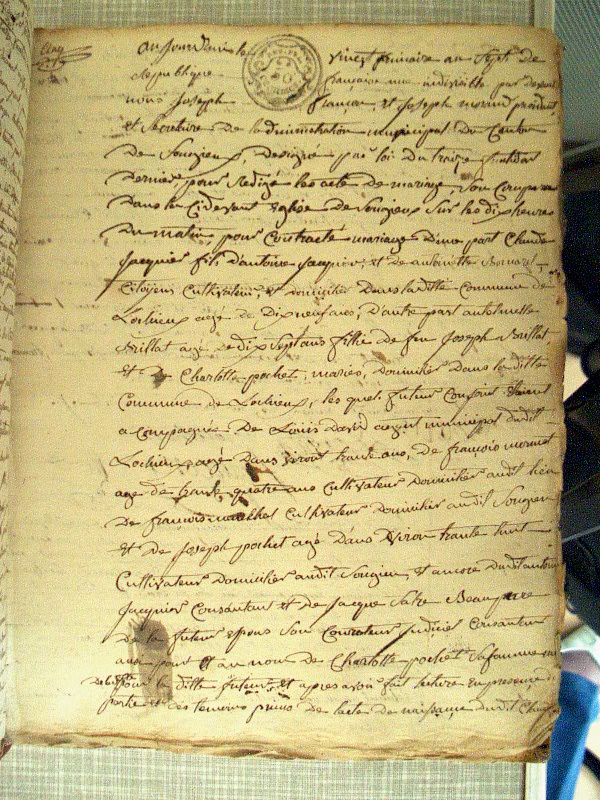 aujourdhui le vingt frimaire an Sept de
Republique françaisse une indivisible par devant
nous Joseph françon, et Joseph morand president
et Secretaire De ladministration municipal Du Canton
De Songieux, Designé par loi Du traize fructidor
Dernier, pour Redigé les acte de mariage, Son Comparu
Dans la Cidevant Eglise De Songieux Sur les dix heures
Du matin pour Contracté mariage D'une part Claude
Jacquier fils d'antoine Jacquier, et de antoinette Bernard
Citoyens Cultivateur, et domicilier dans laditte Commune de
Lochieux agé de Dixneuf ans, D'autre part anthelmette
Brillat agé de dix Sept ans fille de feu Joseph Brillat
et De Charlotte pochet, mariés, Domicilier Dans la ditte
Commune De Lochieux, les quel futur Conjoint Etant
acompagnés De Louis David agent municipal dudit
Lochieux agé Dans viront trante ans, De françois
agé De trante quatre ans Cultivateur Domicilier audit lieu
De françois Cultivateur Domicilier audit Songieu
et De Joseph pochet agé Dans viron trante huit
Cultivateur Domicilier audit Songieu, et ancore dudit antoine
Jacquier Consantant et de Jacque Beaupere
De la futeur Epous Son Curateur Judiciel Consantan
aussi pour et au nom De Charlotte pochet Safamme
pour la ditte futeur, et apres avoir fait lecture En presence de
partie et Des temoins primo De lacte de naissance Dudit Claude